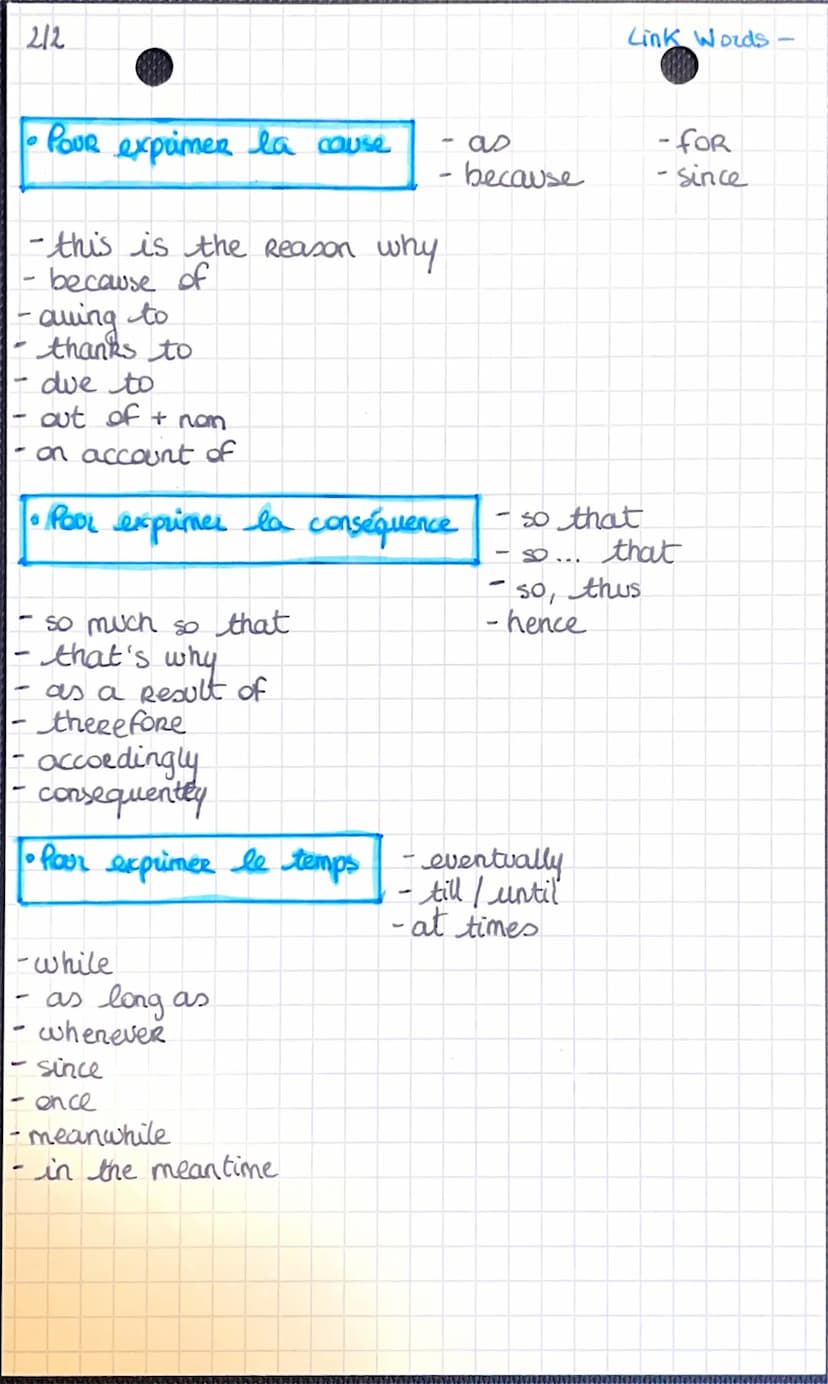 2/2
Link Words -
• Pour exprimer la cause
- as
- because
- for
- since
- this is the reason why
- because of
- owing to
- thanks to
- due to
- out of + nom
- on account of
• Pour exprimer la conséquence
- so that
- so... that
- so, thus
- hence
- so much so that
- that's why
- as a result of
- therefore
- accordingly
- consequently
• Pour exprimer le temps
- eventually
- till / until
- at times
- while
- as long as
- whenever
- since
- once
- meanwhile
- in the meantime